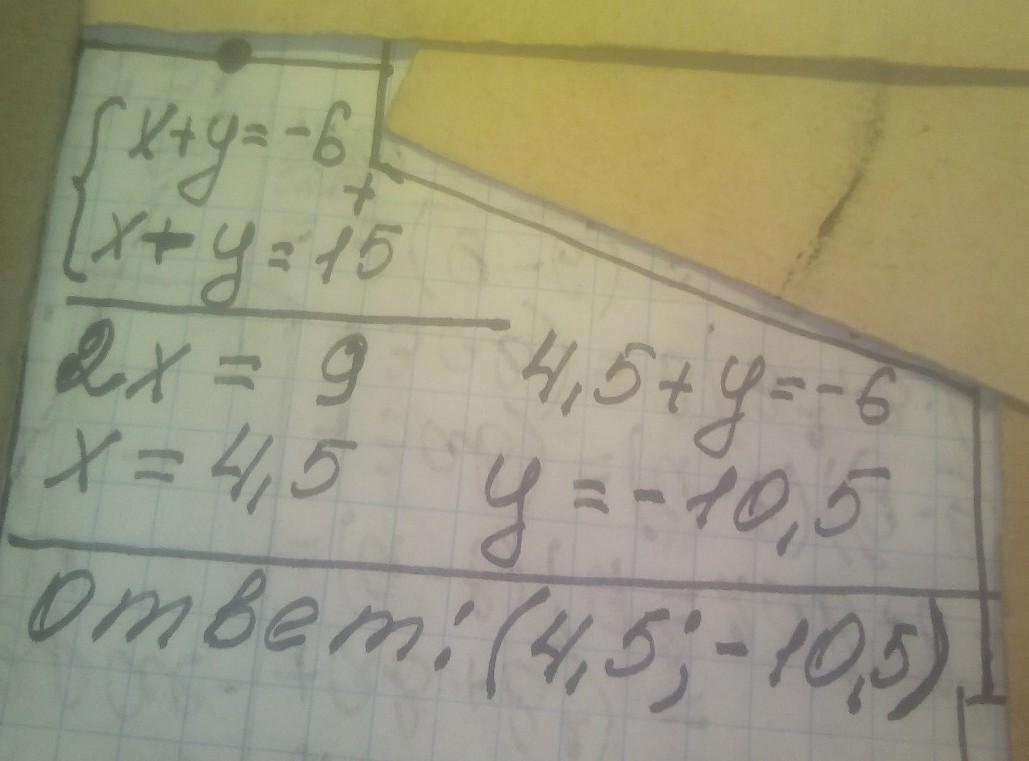 { x+y=-6
+
x+y=15
2x = 9
x = 4,5
4,5+y=-6
y = -10,5
Ответ: (4,5; -10,5)